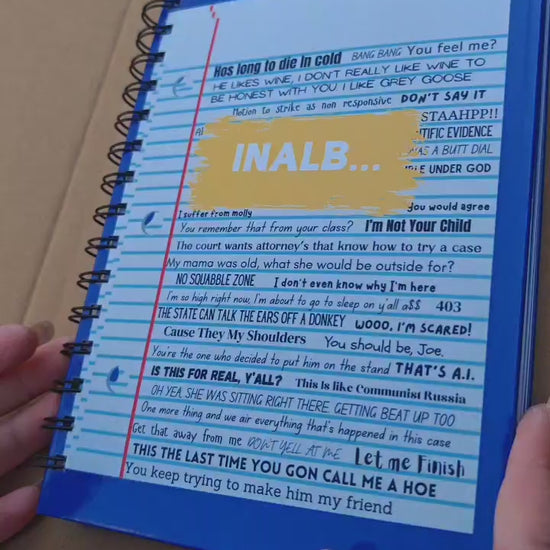 Hos long to die in cold BANG BANG You feel me?
HE LIKES WINE, I DON'T REALLY LIKE WINE TO
BE HONEST WITH YOU I LIKE GREY GOOSE
Motion to strike as non responsive DON'T SAY IT
STAAHPP!!
TIFIC EVIDENCE
INALB...
AS A BUTT DIAL
LE UNDER GOD
I suffer from molly you would agree
You remember that from your class? I'm Not Your Child
The court wants attorney's that know how to try a case
My mama was old, what she would be outside for?
NO SQUABBLE ZONE I don't even know why I'm here
I'm so high right now, I'm about to go to sleep on y'all a$$ 403
THE STATE CAN TALK THE EARS OFF A DONKEY WOOO, I'M SCARED!
Cause They My Shoulders You should be, Joe.
You're the one who decided to put him on the stand THAT'S A.I.
IS THIS FOR REAL, Y'ALL? This Is like Communist Russia
OH YEA, SHE WAS SITTING RIGHT THERE GETTING BEAT UP TOO
One more thing and we air everything that's happened in this case
Get that away from me DON'T YELL AT ME Let me Finish
THIS THE LAST TIME YOU GON CALL ME A HOE
You keep trying to make him my friend